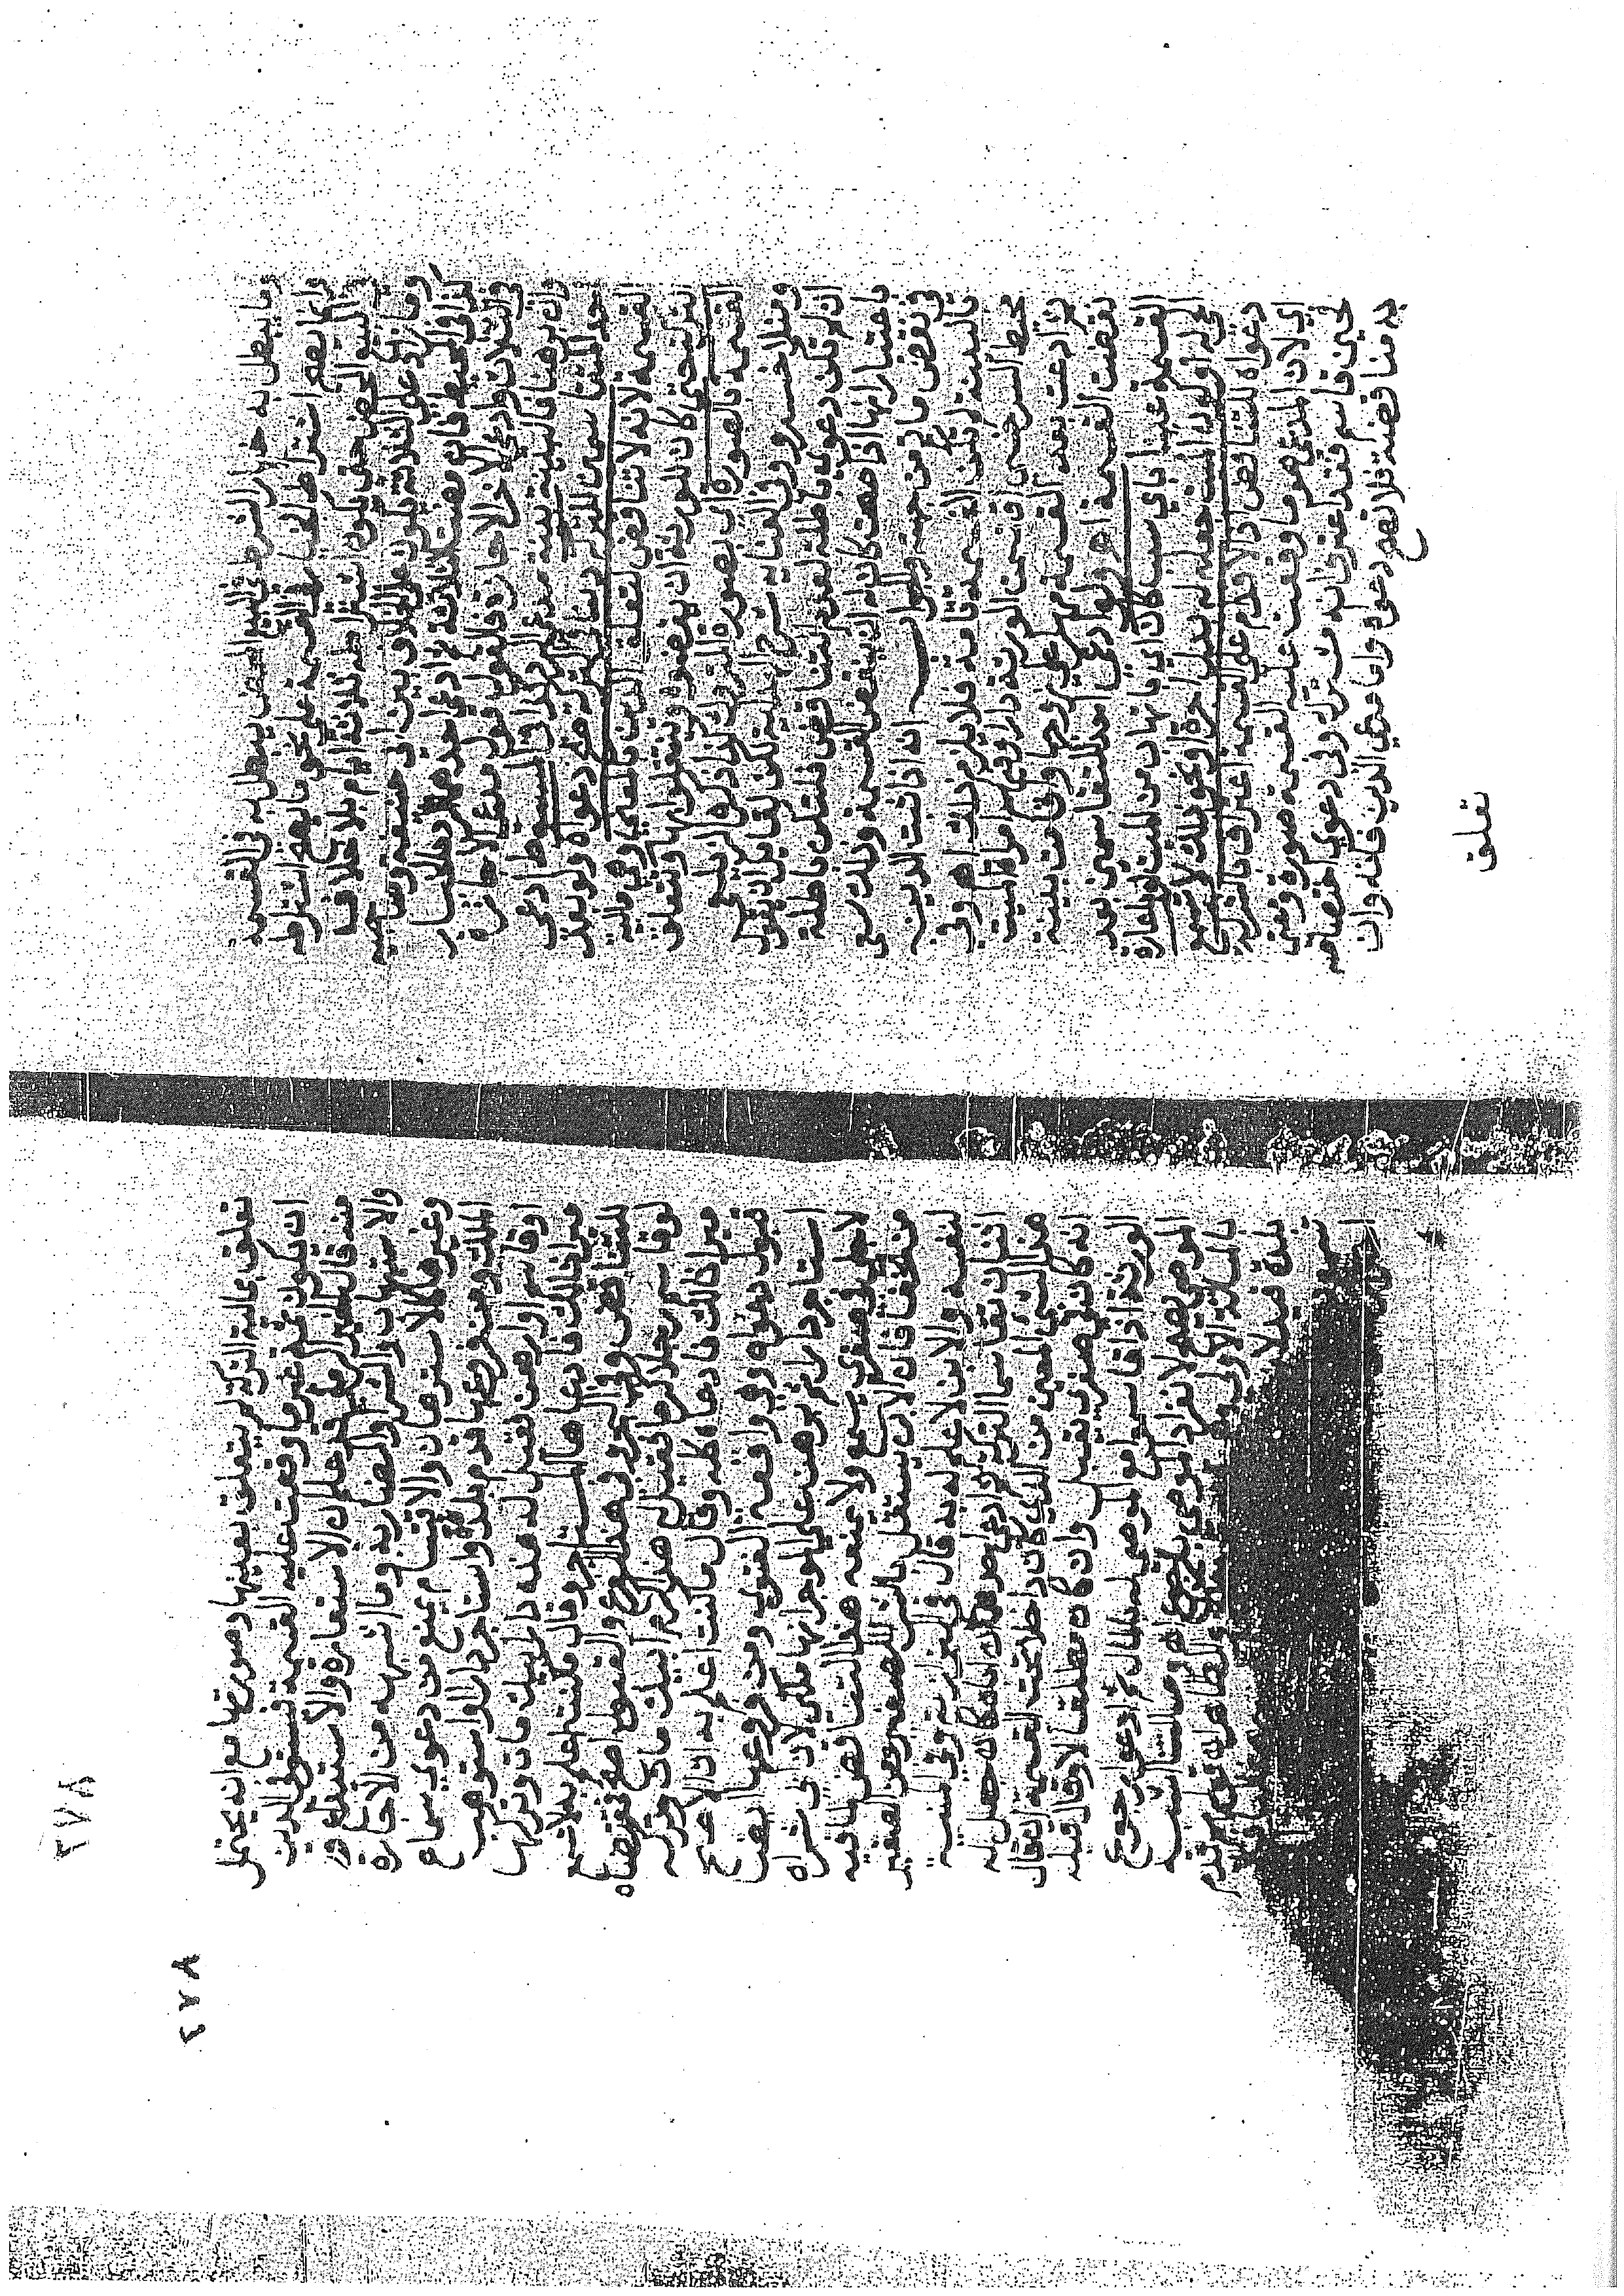 وما يبطل به خيار الشرط في البيع المحض يبطل به في القسمة
وانما يصح اشتراط الخيار في القسمة على نحو ما يصح اشتراطه
في البيع المحض حتى يكون اشتراطه ثلاثة ايام بلا خلاف
وما زاد على الثلاثة يكون على الخلاف بين ابي حنيفة وصاحبيه
كذا في المحيط فان مضت الثلاثة ثم ادعى احدهما الرد بالخيار
في الثلاث وادعى الاخر الاجازة فالقول قول مدعي الاجازة
وان برهنا فالبينة بينة مدعي الرد كذا في المبسوط ادعى
احد المتقاسمين للتركة دينا في التركة صح دعواه ولو بعد
القسمة لانه لا تناقض لتعلق الدين بالمعنى وهي مالية
التركة حتى كان للورثة ان يدفعوه ويستقلوا بها ولا تعلق
القسمة بالصورة اي بصورة التركة كذا ذكره الزيلعي
ومنلا خسرو وفي العناية شرح الهداية لكن لقائل ان يقول
ان لم تكن دعوى باطلة لعدم التناقض فلتكن باطلة
باعتبار انها اذا صحت كان له ان ينقض القسمة وذلك سعي
في نقض ما تم من جهته والجواب انه اذا ثبت الدين
بالبينة لم تكن القسمة تامة فلا يلزم ذلك اهـ وفي
محيط السرخسي اقتسمت الورثة دارا وفيهم امراة الميت
ثم ادعت بعد القسمة مهرا على زوجها واقامت بينة
نقضت القسمة اهـ ولو ادعى احد المتقاسمين بعد
القسمة عينا باي سبب كان اي بانها من الميت
او كون الميت جعله له بدل اجرة او نحو ذلك لا تسمع
دعواه للتناقض اذ الاقدام على القسمة اعتراف بالشركة
اي لان المدعى هو ما وقعت عليه القسمة صورة ومعنى
حين قاسم فقد اعترف بانه مشترك وفي دعوى اختصاصه
به مناقضة فلا تصح دعواه واما مدعي الدين فانه وان
تعلق
٢٧٨
٢٧٨
تعلق بمالية التركة لم يتعلق بعينها وصورتها مع انه يحتمل
ان تكون غير ما وقعت عليه القسمة فيستوفي الدين
منه قال الخير الرملي الاستعارة والاستيداع
والاستيهاب والشراء والمضاربة وما اشبهه من الاجارة
وغيرها كالاسترهان والاقتسام يمنع من دعوى سماع
الملك قدم بلدة واستاجر دارا او استوهب
او قاسم او ارتهن فقيل له هذه دار ابيك مات وتركها
ميراثا لك فادعاها المستاجر وقال ما كنت اعلم بذلك لا تسمع
للتناقض وفي البحر في هذا الفرع والقبول اصح
لو قاسم رجلا كرما فقيل هذا كرم ابيك مات وتركه
ميراثا لك فادعاه كله وقال ما كنت اعلم به ان الاصح
قبول دعواه وهي واقعة الفتوى ومن فروعها ايضا
استاجر دارا ثم برهن على المؤجر انها ملكي لان ابي شراه
لاجلي في صغري تسمع ولا يمنعه هذا التناقض لما فيه
من الخفاء فان الاب يستقل بالشراء للصغير ومن الصغير
لنفسه والابن لا علم له به قال في البزازية وفي المنية
اذا تقاسما التركة ثم ادعى احدهما ان اباه كان جعل له
هذا الشيء المعين من الذي كان داخلا تحت القسمة ان قال
انه كان في صغري تقبل وان كان مطلقا لا وقال قبله
الورثة اذا قاسموا مع الموصى له بالمال ثم ادعوا رجوع
الموصي يصح لانفراد الموصي بالرجوع اهـ ومسالتنا اشبه
الاولى
بلدة قيل لا